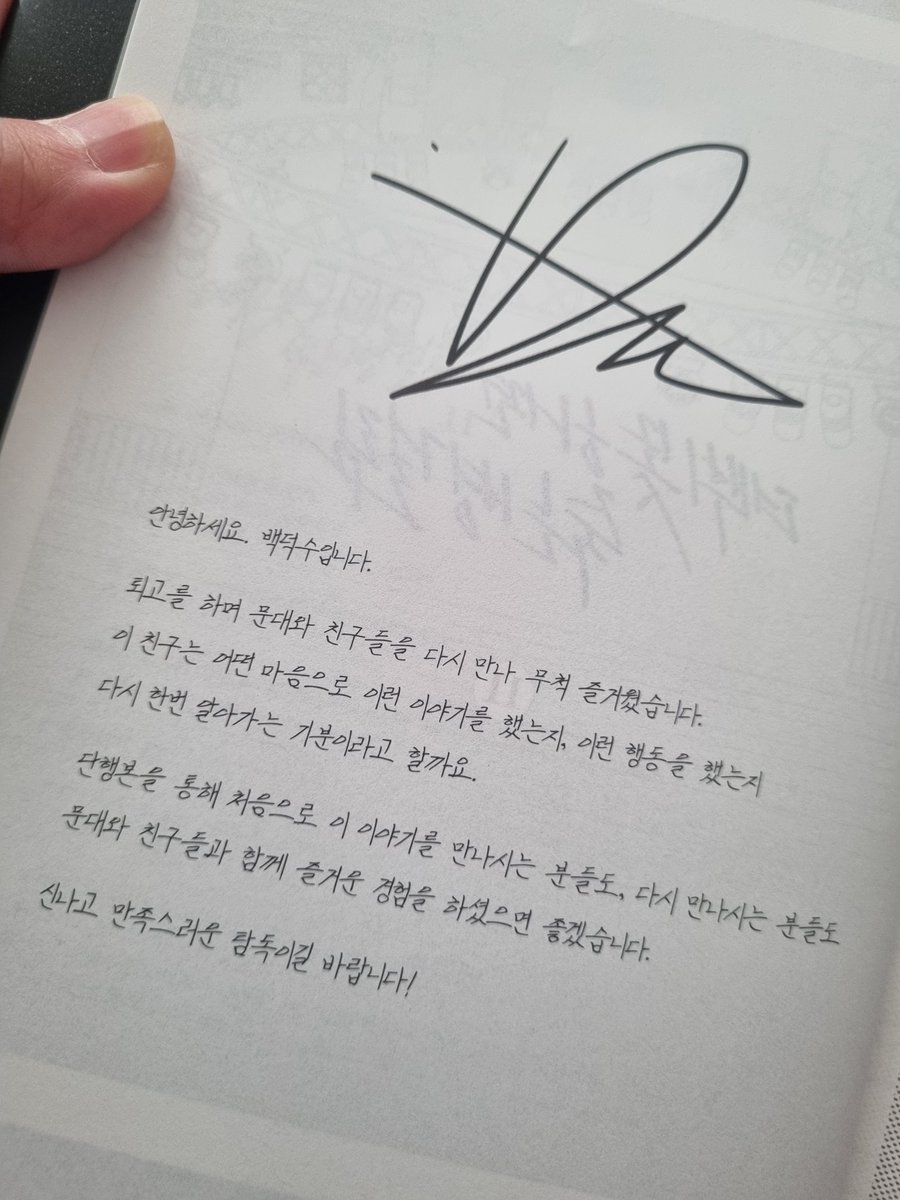 안녕하세요. 백덕수입니다.
퇴고를 하며 문대와 친구들을 다시 만나 무척 즐거웠습니다.
이 친구는 어떤 마음으로 이런 이야기를 했는지, 이런 행동을 했는지
다시 한번 알아가는 기분이라고 할까요.
단행본을 통해 처음으로 이 이야기를 만나시는 분들도, 다시 만나시는 분들도
문대와 친구들과 함께 즐거운 경험을 하셨으면 좋겠습니다.
신나고 만족스러운 탐독이길 바랍니다!